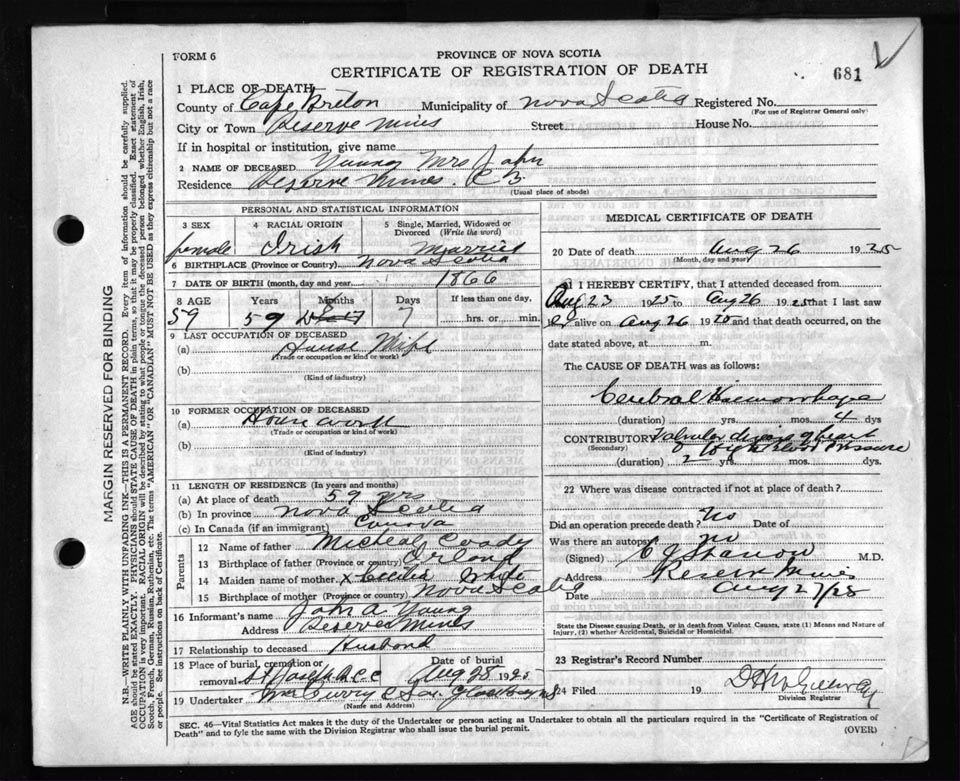 FORM 6
PROVINCE OF NOVA SCOTIA
CERTIFICATE OF REGISTRATION OF DEATH
681
1 PLACE OF DEATH
County of Cape Breton Municipality of Nova Scotia Registered No.
(For use of Registrar General only)
City or Town Reserve Mines Street House No.
If in hospital or institution, give name
2 NAME OF DECEASED Young Mrs John
Residence Reserve Mines. C B.
(Usual place of abode)
PERSONAL AND STATISTICAL INFORMATION
3 SEX 4 RACIAL ORIGIN 5 Single, Married, Widowed or Divorced (Write the word)
female Irish Married
6 BIRTHPLACE (Province or Country) Nova Scotia
7 DATE OF BIRTH (month, day and year) 1866
8 AGE Years Months Days If less than one day,
59 59 7 hrs. or min.
9 LAST OCCUPATION OF DECEASED
(a) House Wife
(Trade or occupation or kind of work)
(b)
(Kind of industry)
10 FORMER OCCUPATION OF DECEASED
(a) House work
(Trade or occupation or kind of work)
(b)
(Kind of industry)
11 LENGTH OF RESIDENCE (In years and months)
(a) At place of death 59 yrs
(b) In province Nova Scotia
(c) In Canada (if an immigrant)
Parents
12 Name of father Micheal Coady
13 Birthplace of father (Province or country)
14 Maiden name of mother x Cecilia White
15 Birthplace of mother (Province or country) Nova Scotia
16 Informant's name John A Young
Address Reserve Mines
17 Relationship to deceased Husband
18 Place of burial, cremation or removal Date of burial
St Josephs Aug 28 1925
19 Undertaker Glace Bay N S
(Name and Address)
MEDICAL CERTIFICATE OF DEATH
20 Date of death Aug 26 1925
(Month, day and year)
21 I HEREBY CERTIFY, that I attended deceased from
Aug 23 1925 to Aug 26 1925 that I last saw
er alive on Aug 26 1925 and that death occurred, on the
date stated above, at m.
The CAUSE OF DEATH was as follows:
Cerebral Haemorrhage
(duration) yrs. mos. 4 dys
CONTRIBUTORY Valvular disease of heart
(Secondary) & blood pressure
(duration) 2 yrs. mos. dys.
22 Where was disease contracted if not at place of death?
Did an operation precede death? No Date of
Was there an autopsy? no
(Signed) M.D.
Address Reserve Mines
Date Aug 27/25
State the Disease causing Death, or in death from Violent Causes, state (1) Means and Nature of
Injury, (2) whether Accidental, Suicidal or Homicidal.
23 Registrar's Record Number
24 Filed 19
Division Registrar
SEC. 46—Vital Statistics Act makes it the duty of the Undertaker or person acting as Undertaker to obtain all the particulars required in the "Certificate of Registration of
Death" and to fyle the same with the Division Registrar who shall issue the burial permit.
(OVER)
MARGIN RESERVED FOR BINDING
N.B.—WRITE PLAINLY WITH UNFADING INK—THIS IS A PERMANENT RECORD. Every item of information should be carefully supplied.
AGE should be stated EXACTLY. PHYSICIANS should STATE CAUSE OF DEATH in plain terms, so that it may be properly classified. Exact statement of
OCCUPATION is very important. RACIAL ORIGIN will be described by stating to what people or tongue the deceased person belonged whether English, Irish,
Scotch, French, German, Russian, Ruthenian, etc. The terms "AMERICAN" or "CANADIAN" MUST NOT BE USED as they express citizenship but not a race
or people. See instructions on back of Certificate.